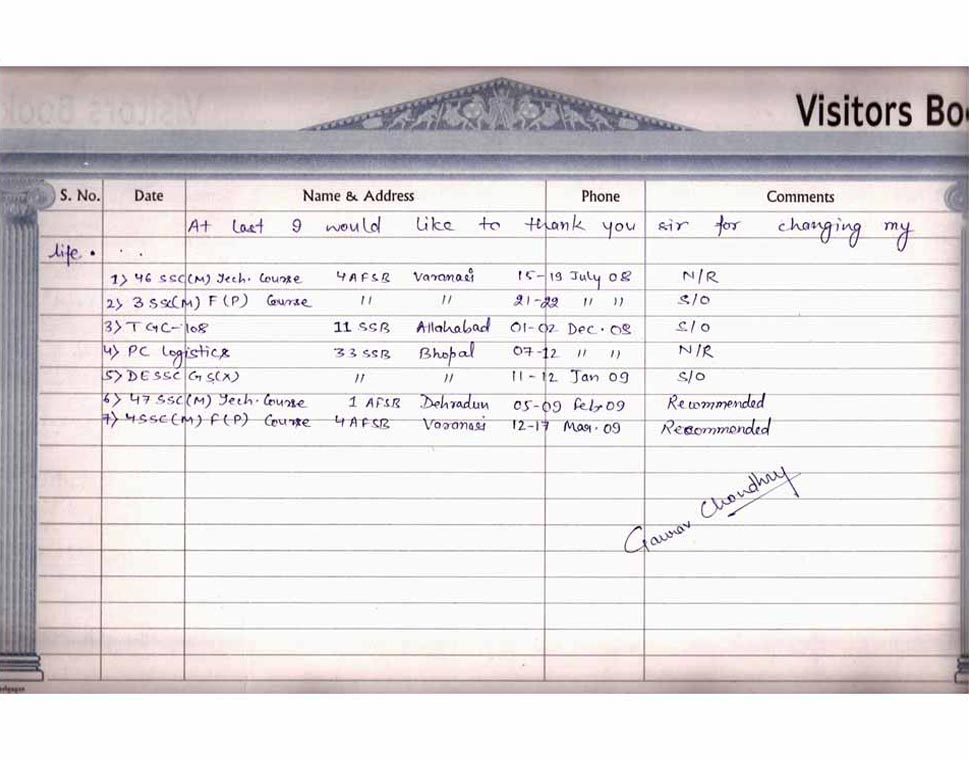 Visitors Boo
S. No. Date Name & Address Phone Comments
At last I would like to thank you sir for changing my
life . . .
1) 46 SSC(M) Tech. Course 4 AFSB Varanasi 15-19 July 08 N/R
2) 3 SSC(M) F(P) Course " " 21-22 " " S/O
3) TGC-108 11 SSB Allahabad 01-02 Dec. 08 S/O
4) PC Logistics 33 SSB Bhopal 07-12 " " N/R
5) DESSC GS(X) " " 11-12 Jan 09 S/O
6) 47 SSC(M) Tech. Course 1 AFSB Dehradun 05-09 Feb 09 Recommended
7) 4 SSC(M) F(P) Course 4 AFSB Varanasi 12-17 Mar. 09 Recommended
Gaurav Choudhry